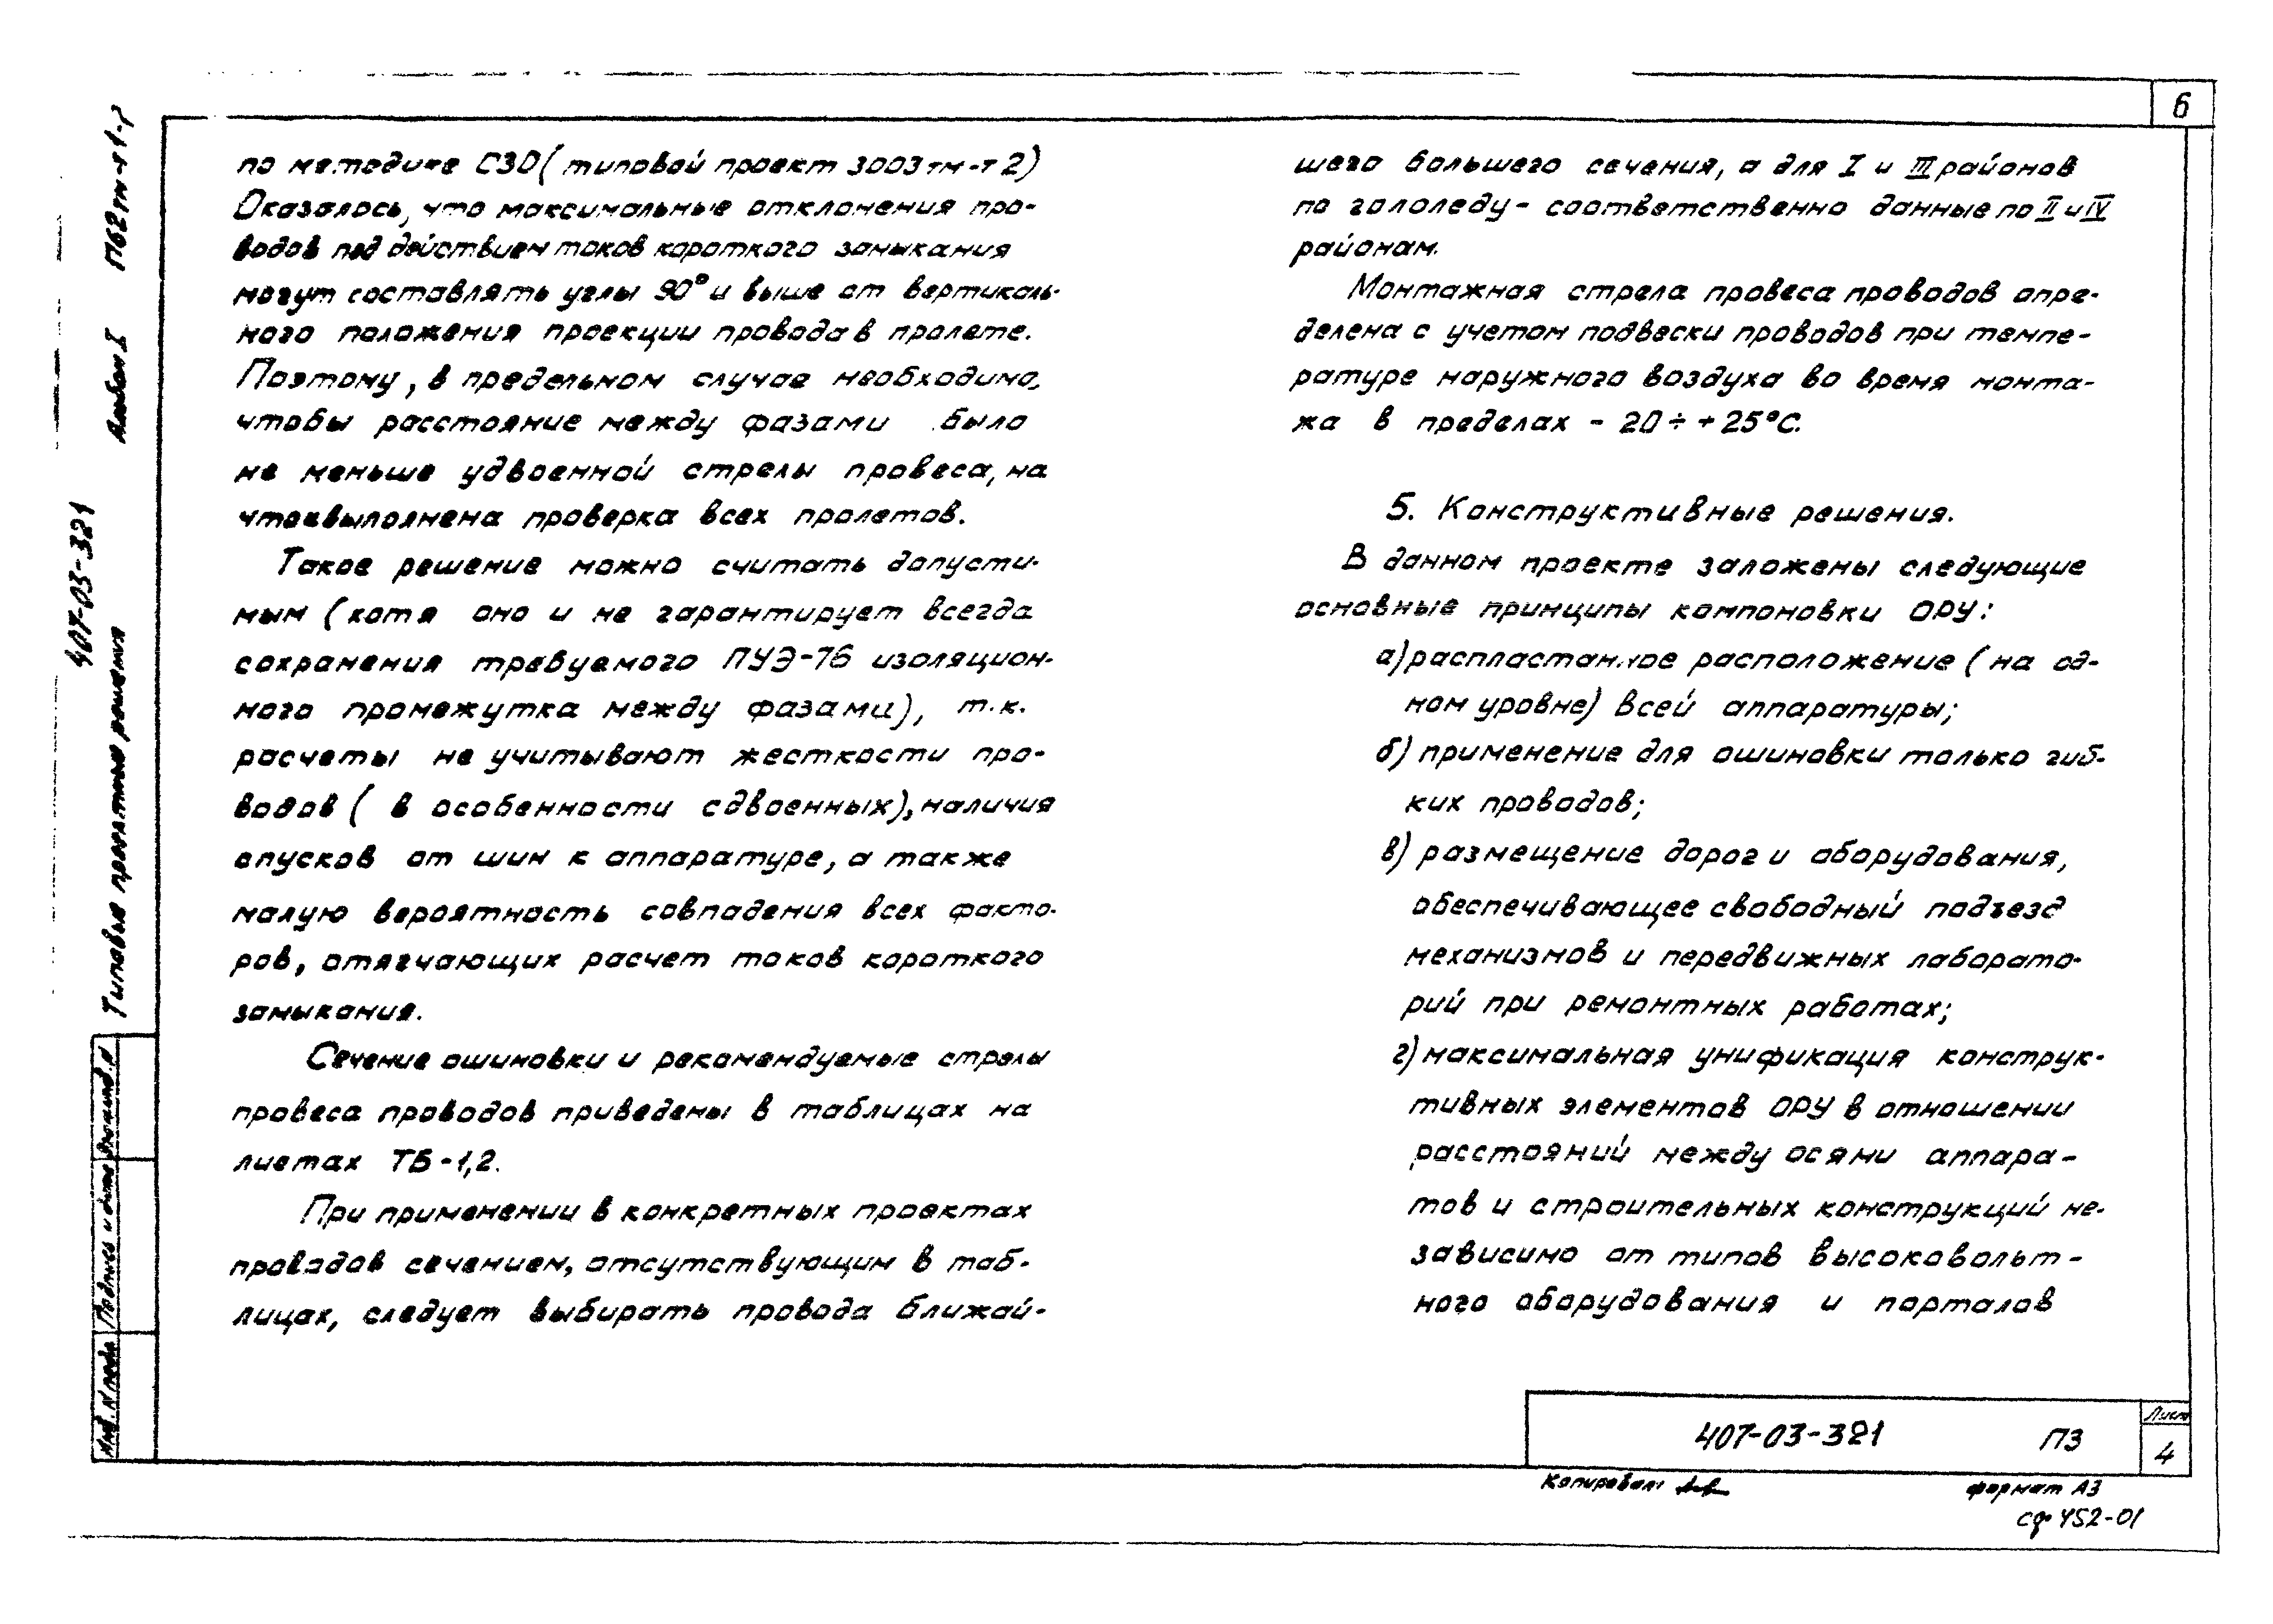 6
по методике СЗО (типовой проект 3003тм-т2)
Оказалось, что максимальные отклонения про-
водов под действием токов короткого замыкания
могут составлять углы 90° и выше от вертикаль-
ного положения проекции провода в пролете.
Поэтому, в предельном случае необходимо,
чтобы расстояние между фазами было
не меньше удвоенной стрелы провеса, на
что и выполнена проверка всех пролетов.
Такое решение можно считать допусти-
мым (хотя оно и не гарантирует всегда
сохранения требуемого ПУЭ-76 изоляцион-
ного промежутка между фазами), т.к.
расчеты не учитывают жесткости про-
водов (в особенности сдвоенных), наличия
спусков от шин к аппаратуре, а также
малую вероятность совпадения всех факто-
ров, отягчающих расчет токов короткого
замыкания.
Сечение ошиновки и рекомендуемые стрелы
провеса проводов приведены в таблицах на
листах ТБ-1,2.
При применении в конкретных проектах
проводов сечением, отсутствующим в таб-
лицах, следует выбирать провода ближай-
шего большего сечения, а для I и III районов
по гололеду - соответственно данные по II и IV
районам.
Монтажная стрела провеса проводов опре-
делена с учетом подвески проводов при темпе-
ратуре наружного воздуха во время монта-
жа в пределах - 20 ÷ + 25°С.
5. Конструктивные решения.
В данном проекте заложены следующие
основные принципы компоновки ОРУ:
а) распластанное расположение (на од-
ном уровне) всей аппаратуры;
б) применение для ошиновки только гиб-
ких проводов;
в) размещение дорог и оборудования,
обеспечивающее свободный подъезд
механизмов и передвижных лаборато-
рий при ремонтных работах;
г) максимальная унификация конструк-
тивных элементов ОРУ в отношении
расстояний между осями аппара-
тов и строительных конструкций не-
зависимо от типов высоковольт-
ного оборудования и порталов
407-03-321 ПЗ
Лист
4
Копировал:
формат А3
сф 452-01
Типовые проектные решения 407-03-321 Альбом I
Взам.инв.№
Подпись и дата
Инв. № подл.